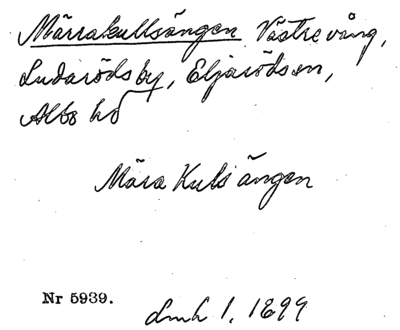 Märrakullsängen Västre vång,
Ludaröds by, Eljaröds sn,
Albo hd
Mära Kuls ängen
Nr 5939.
Lmh 1, 1899